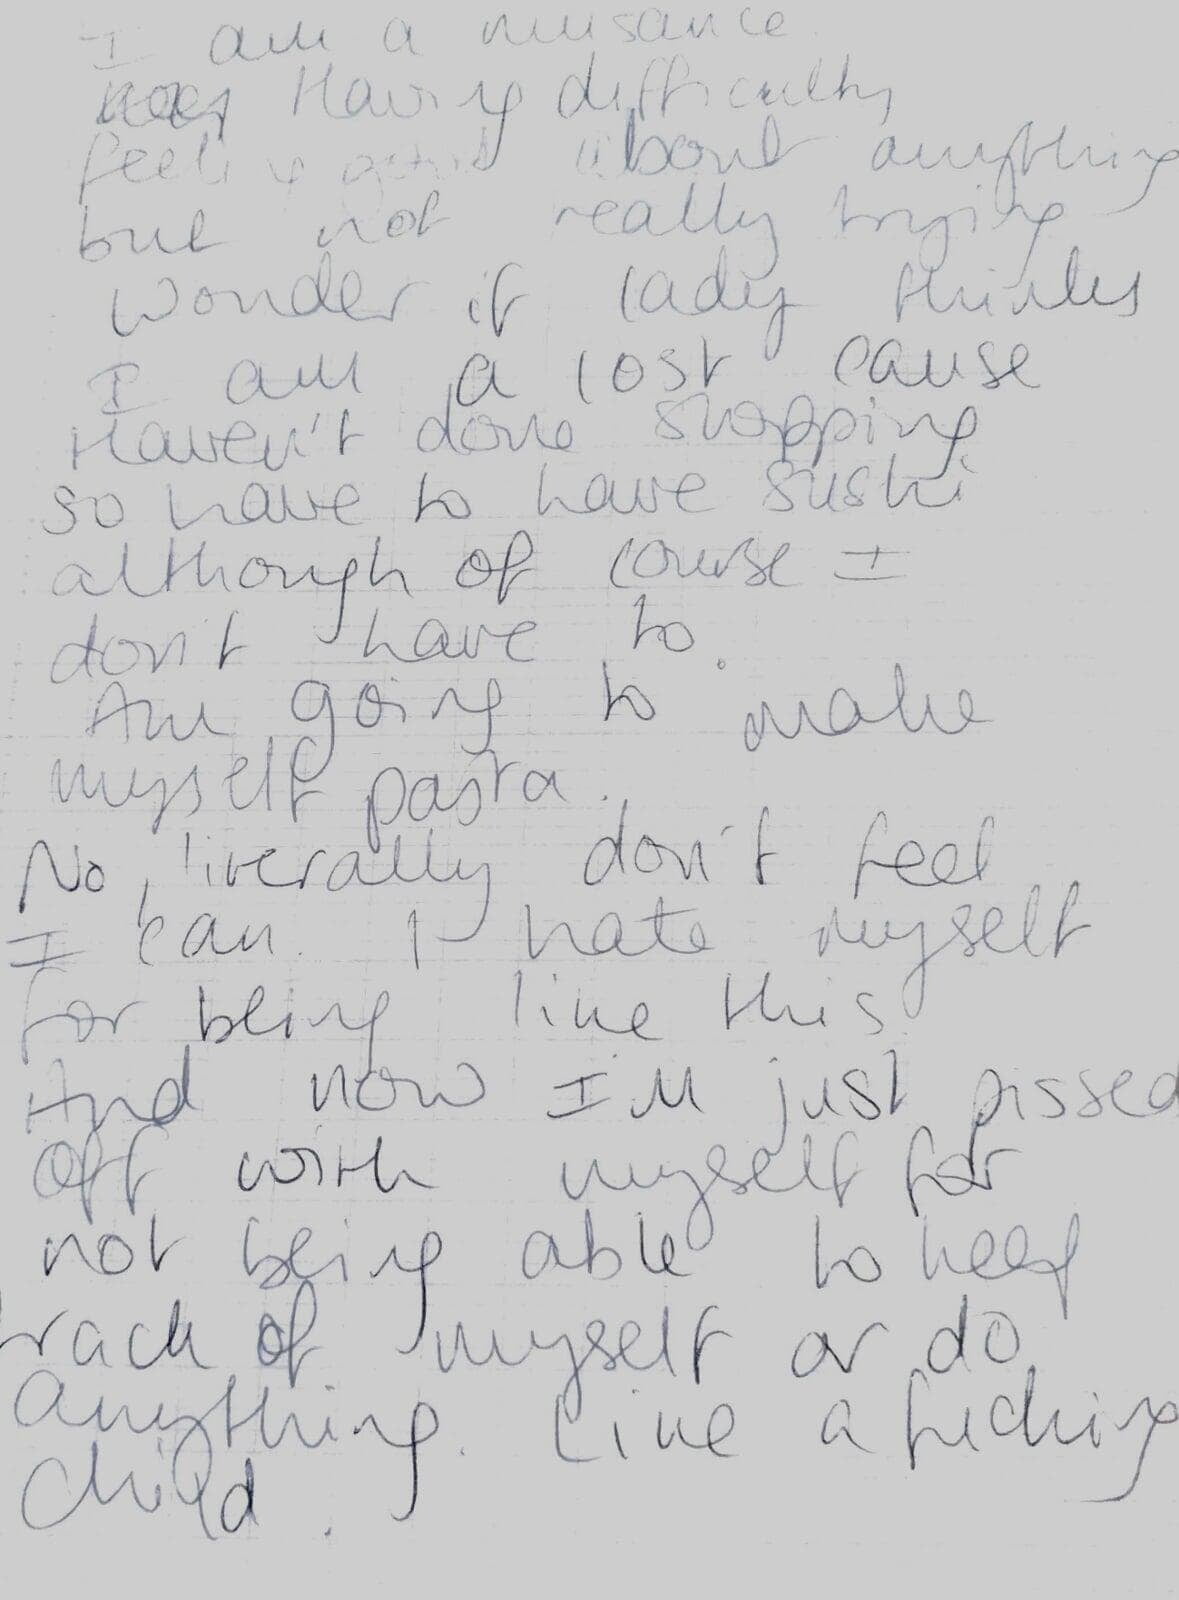 I am a nuisance.
Having difficulty
feeling good about anything
but not really trying
wonder if lady thinks
I am a lost cause
Haven't done shopping
so have to have sushi
although of course I
don't have to.
Am going to make
myself pasta.
No, literally don't feel
I can. I hate myself
for being like this.
And now I'm just pissed
off with myself for
not being able to keep
track of myself or do
anything. Like a fucking
child.